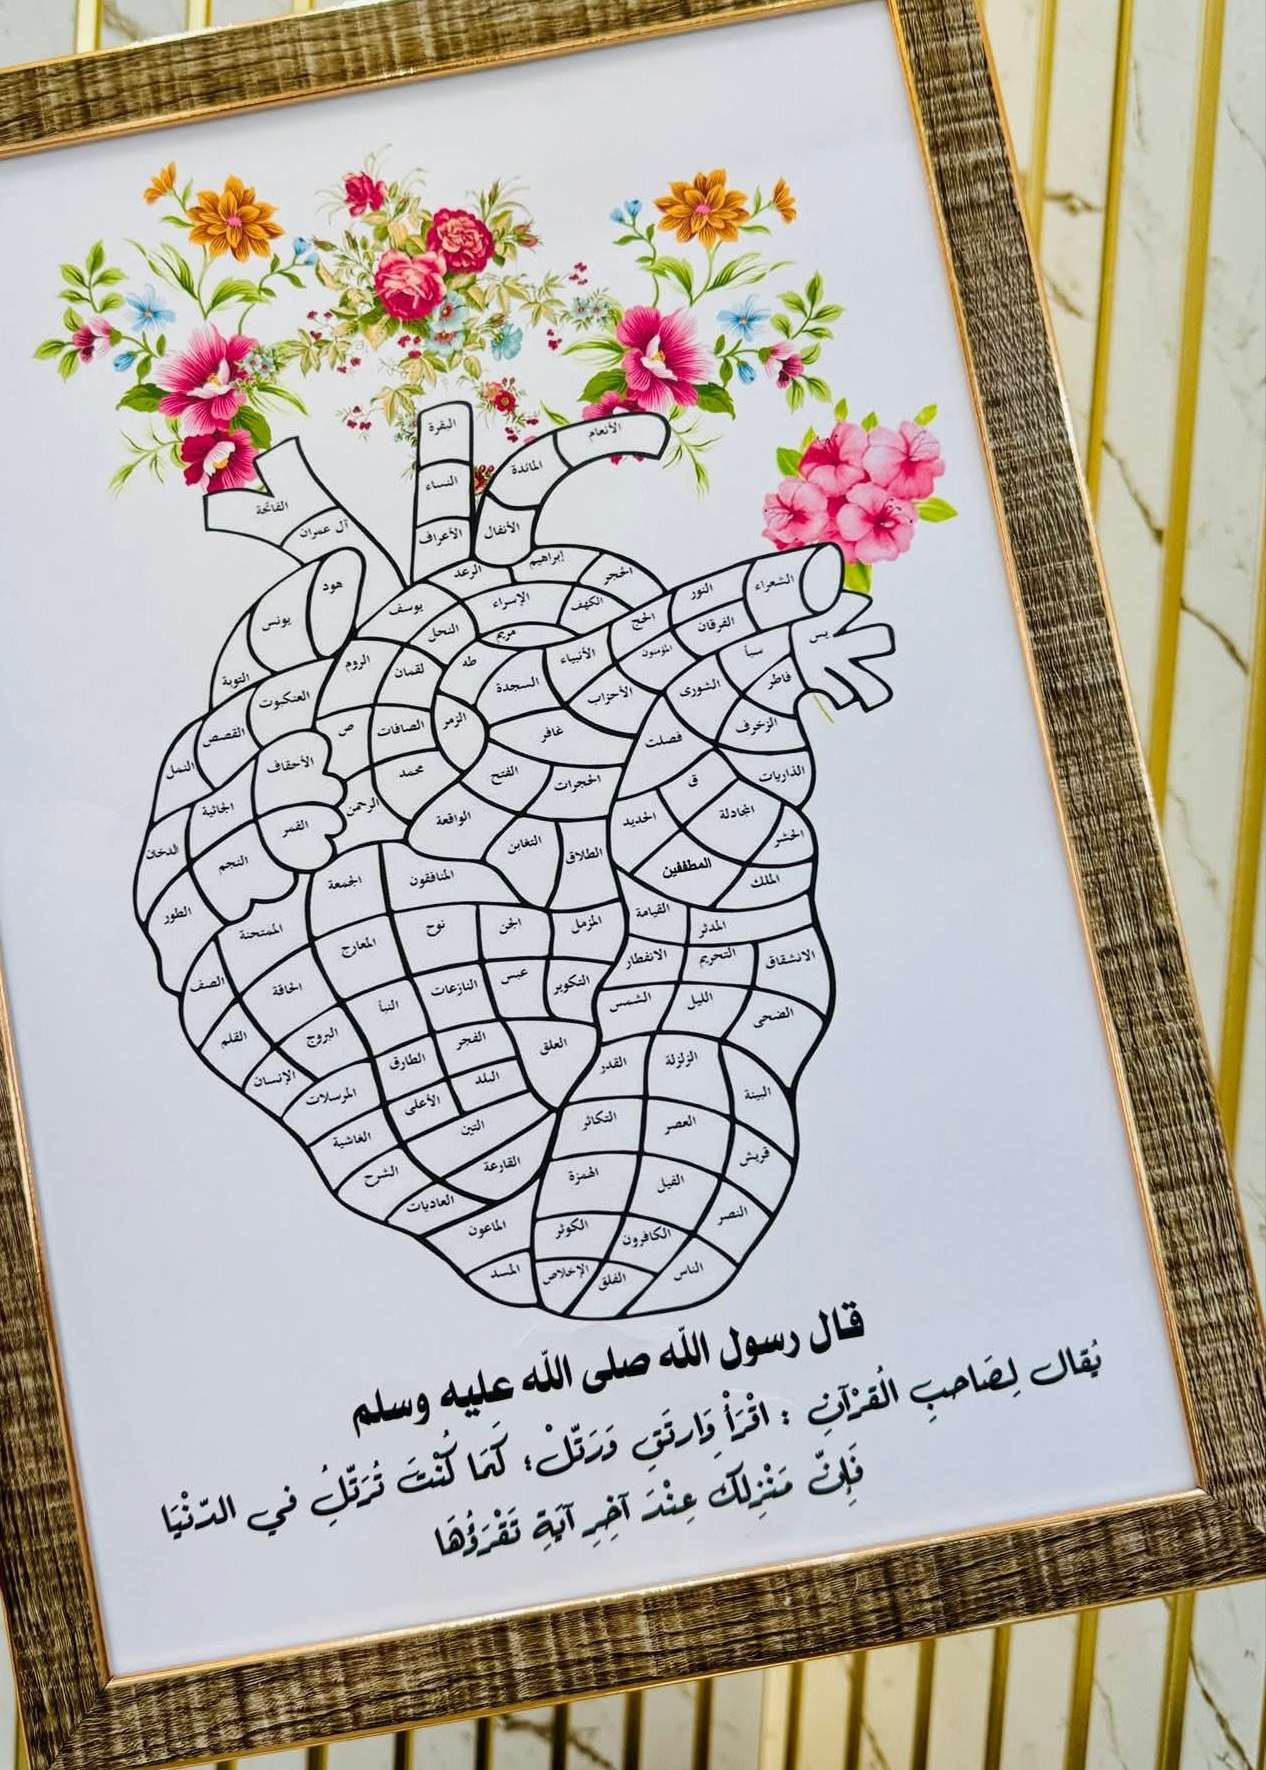 البقرة
الأنعام
المائدة
النساء
الفاتحة
آل عمران
الأعراف
الأنفال
هود
يونس
التوبة
يوسف
الرعد
إبراهيم
الحجر
النحل
الإسراء
الكهف
مريم
طه
الأنبياء
الحج
المؤمنون
النور
الفرقان
الشعراء
النمل
القصص
العنكبوت
الروم
لقمان
السجدة
الأحزاب
سبأ
فاطر
يس
الصافات
ص
الزمر
غافر
فصلت
الشورى
الزخرف
الدخان
الجاثية
الأحقاف
محمد
الفتح
الحجرات
ق
الذاريات
الطور
النجم
القمر
الرحمن
الواقعة
الحديد
المجادلة
الحشر
الممتحنة
الصف
الجمعة
المنافقون
التغابن
الطلاق
التحريم
الملك
القلم
الحاقة
المعارج
نوح
الجن
المزمل
المدثر
القيامة
الإنسان
المرسلات
النبأ
النازعات
عبس
التكوير
الانفطار
المطففين
الانشقاق
البروج
الطارق
الأعلى
الغاشية
الفجر
البلد
الشمس
الليل
الضحى
الشرح
التين
العلق
القدر
البينة
الزلزلة
العاديات
القارعة
التكاثر
العصر
الهمزة
الفيل
قريش
الماعون
الكوثر
الكافرون
النصر
المسد
الإخلاص
الفلق
الناس
قال رسول الله صلى الله عليه وسلم
يُقال لِصَاحبِ الُقرْآنِ : اقْرَأْ وَارتَقِ وَرَتّلْ؛ كَمَا كُنْتَ تُرَتّلُ في الدّنْيَا
فَإِنّ مَنْزِلكَ عِنْدَ آخِرِ آيَةِ تَقْرَؤُهَا